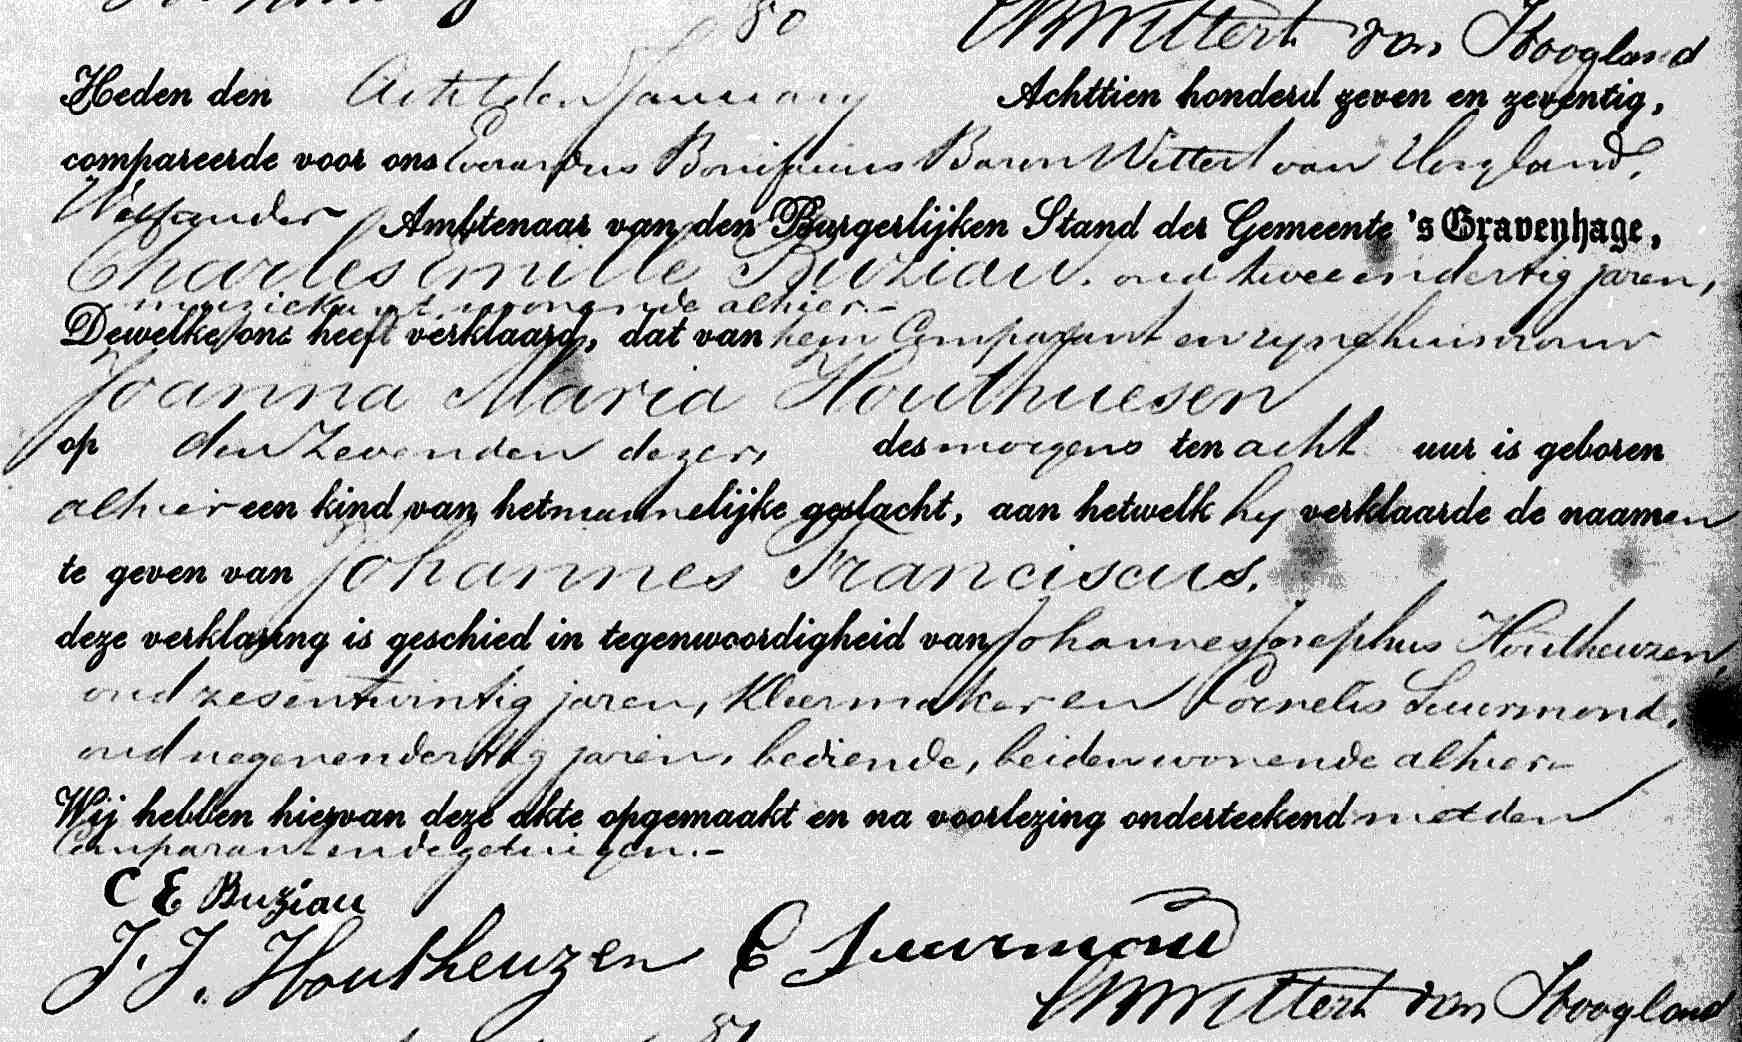 80
EBFWittert van Hoogland
Heden den Achtsten January Achttien honderd zeven en zeventig,
compareerde voor ons Everardus Bonifacius Baron Wittert van Hoogland,
Wethouder Ambtenaar van den Burgerlijken Stand der Gemeente 's Gravenhage,
Charles Emille Buziau. oud twee en dertig jaren,
muzickant, wonende alhier.-
Dewelke ons heeft verklaard, dat van hem Comparant en zyne huisvrouw
Joanna Maria Houthuesen
op den Zevenden dezer, des morgens ten acht uur is geboren
alhier een kind van het mannelijke geslacht, aan hetwelk hy verklaarde de naamen
te geven van Johannes Franciscus.
deze verklaring is geschied in tegenwoordigheid van Johannes Josephus Houtheuzen,
oud zesentwintig jaren, Kleermaker en Cornelis Suurmond,
oud negenendertig jaren, bediende, beiden wonende alhier-
Wij hebben hiervan deze akte opgemaakt en na voorlezing onderteekend met den
Comparant en de getuigen.-
C E Buziau
J. J. Houtheuzen C Suurmond
EBFWittert van Hoogland
81